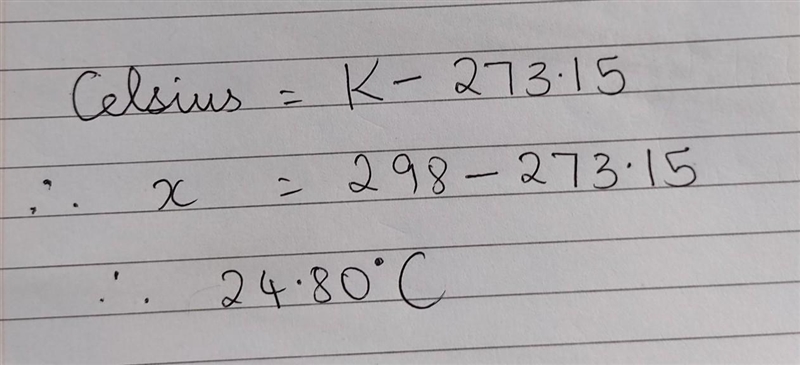 Celsius = K - 273.15
∴ x = 298 - 273.15
∴ 24.80°C